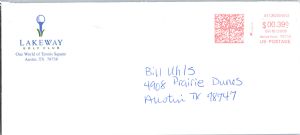 LAKEWAY
GOLF CLUB
One World of Tennis Square
Austin, TX 78738
$00.390
US POSTAGE
Bill Uhls
4908 Prairie Dunes
Austin TX 78747